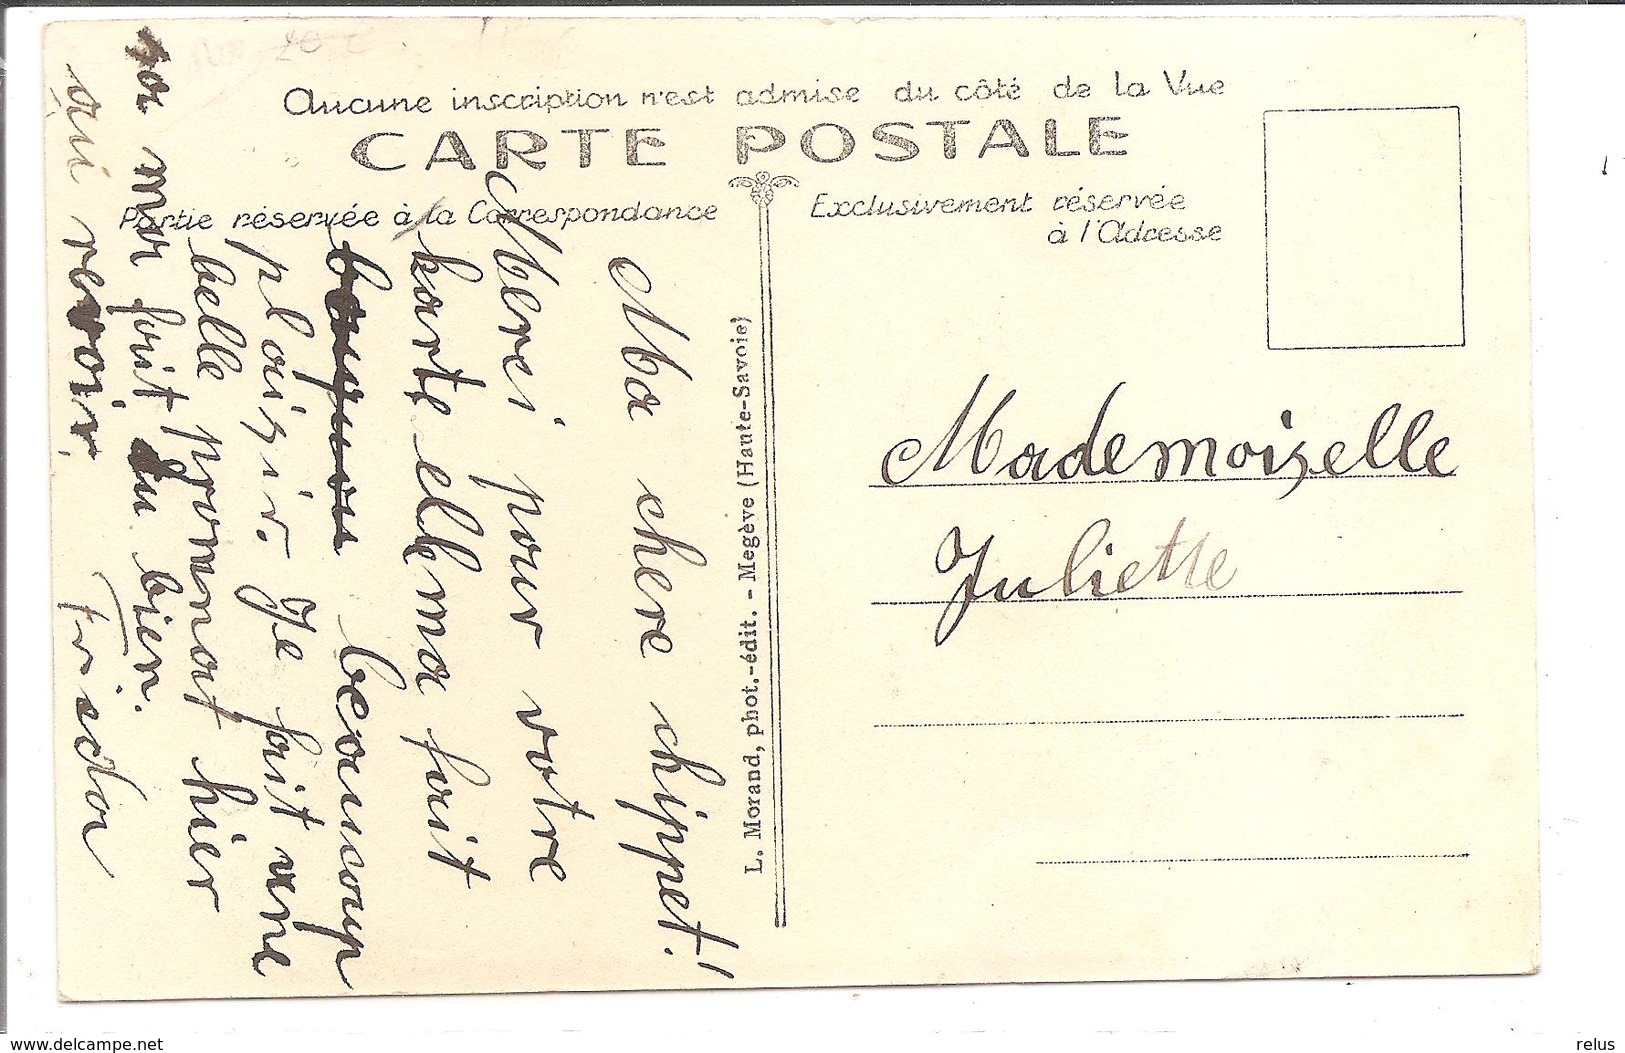 Aucune inscription n'est admise du côté de la Vue
CARTE POSTALE
Partie réservée à la Correspondance
Exclusivement réservée
à l'Adresse
Ma chere chippet!
Merci pour votre
karte elle ma fait
beaucoup
plaizir. Je fait une
belle promnat hier
sa ma fait du bien.
au revoir
Frieda
L. Morand, phot.-édit. - Megève (Haute-Savoie)
Mademoizelle
Juliette
www.delcampe.net
relus